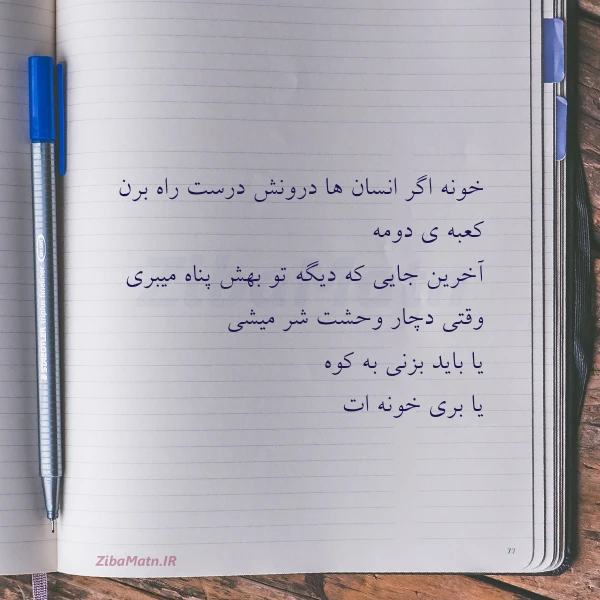 خونه اگر انسان ها درونش درست راه برن
کعبه ی دومه
آخرین جایی که دیگه تو بهش پناه میبری
وقتی دچار وحشت شر میشی
یا باید بزنی به کوه
یا بری خونه ات
77
ZibaMatn.IR